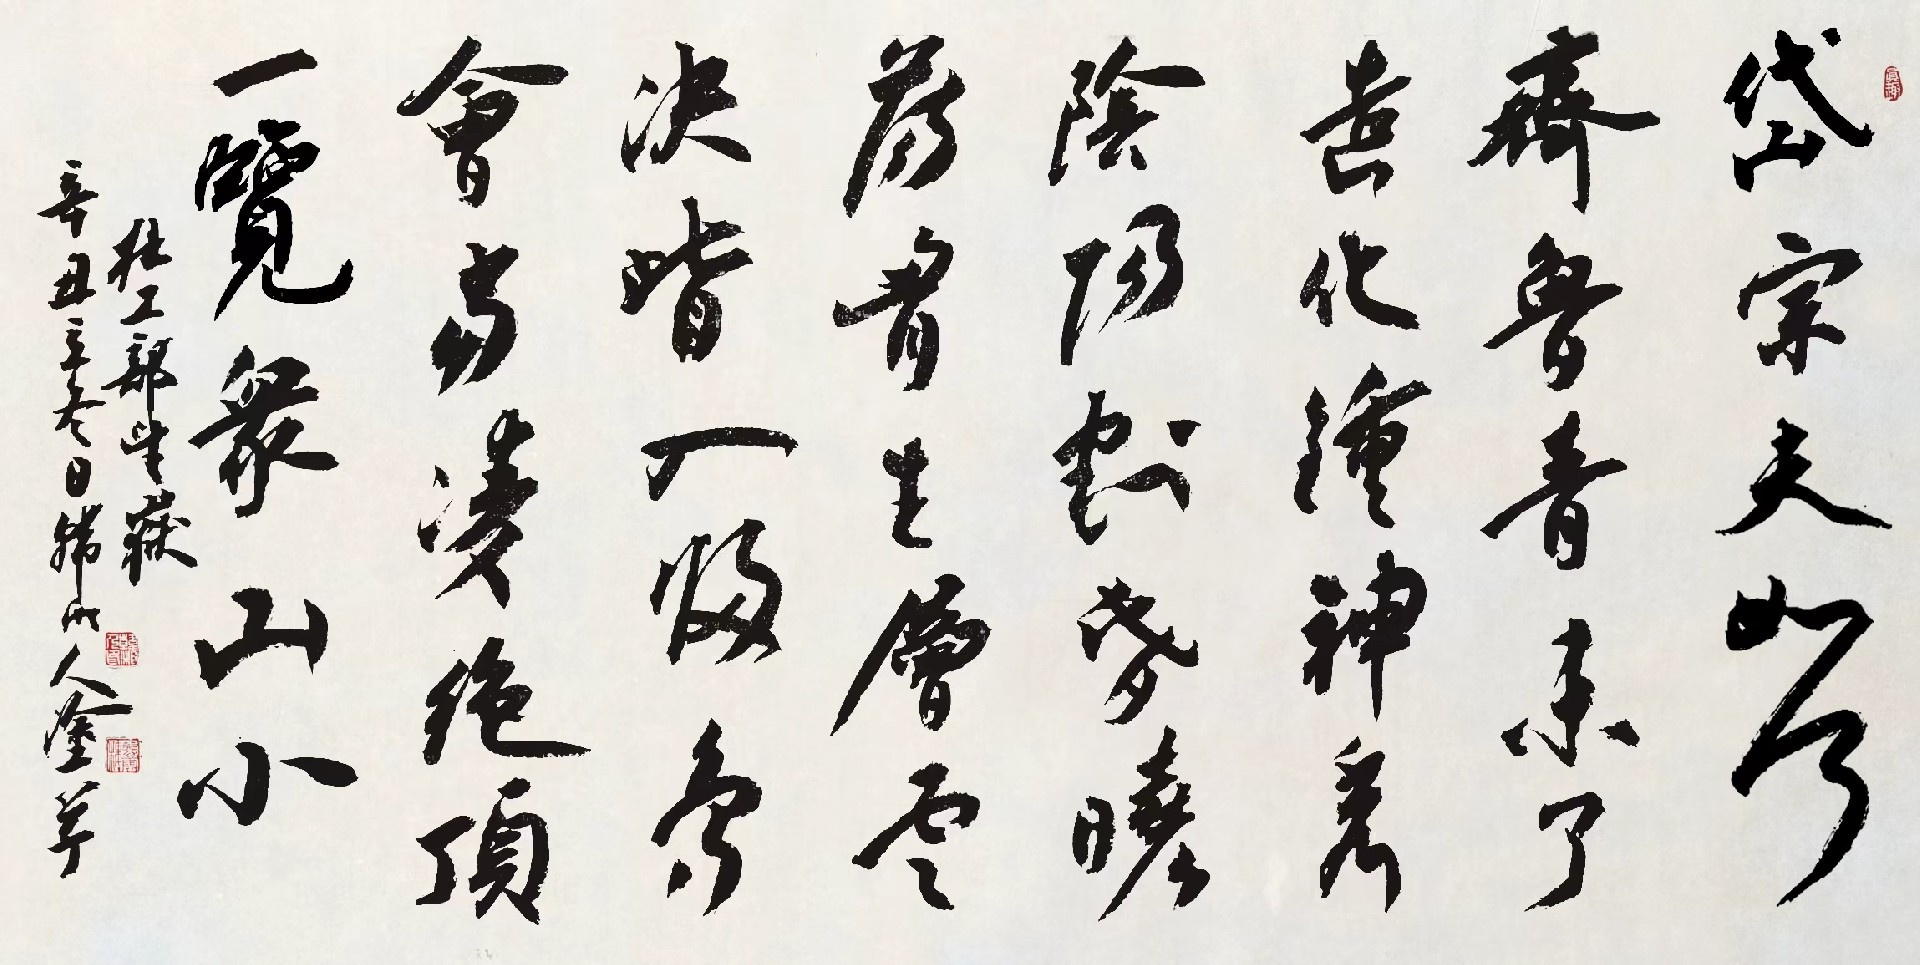 岱宗夫如何
齊魯青未了
造化鍾神秀
陰陽割昏曉
蕩胸生層雲
決眥入歸鳥
會當凌絕頂
一覽眾山小
杜工部望嶽
辛丑立冬日山人草